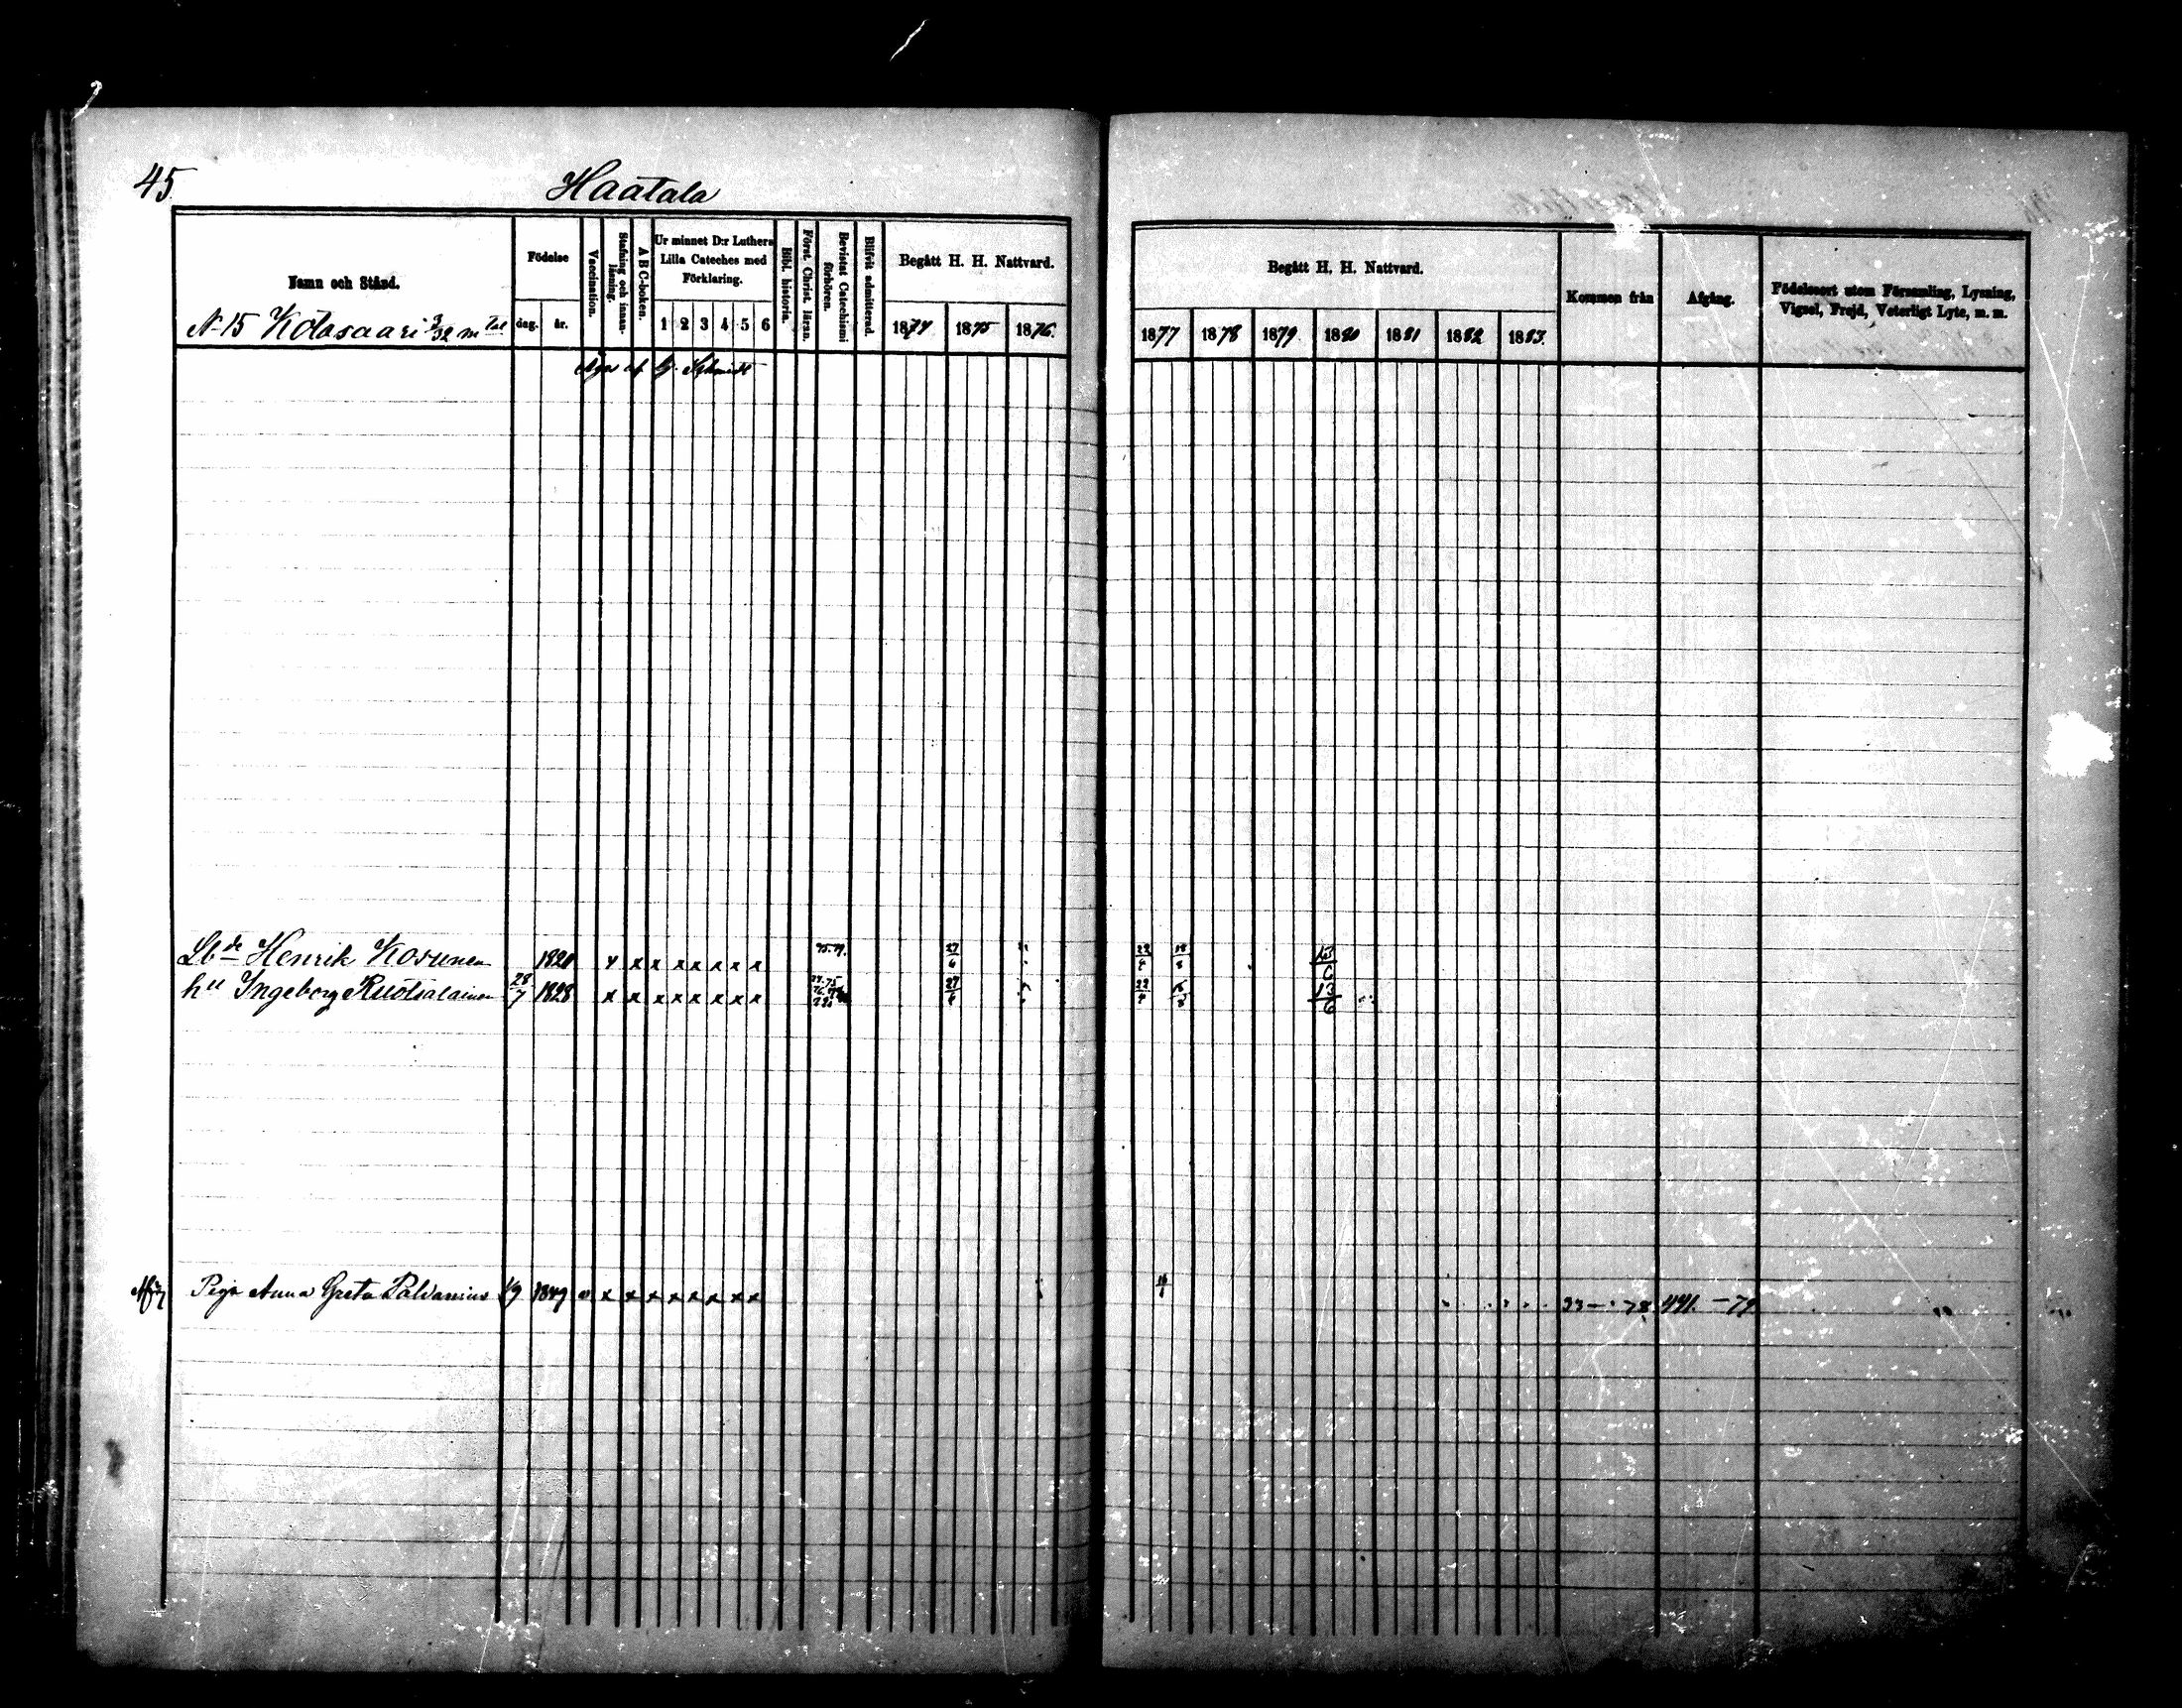 45.
Haatala
Namn och Stånd.
Födelse
dag.
år.
Vaccination.
Stafning och innan-
läsning.
A B C-boken.
Ur minnet D:r Luthers
Lilla Cateches med
Förklaring.
1 2 3 4 5 6
Bibl. historia.
Först. Christ. läran.
Bevistat Catechismi
förhören.
Blifvit admitterad.
Begått H. H. Nattvard.
1874 1875 1876.
Begått H. H. Nattvard.
1877 1878 1879 1880 1881 1882 1883.
Kommen från
Afgång.
Födelseort utom Församling, Lysning,
Vigsel, Frejd, Veterligt Lyte, m. m.
N 15 Kotasaari 3/32 mtal
Äges af G. Schmidt
Lbde Henrik Kosunen 1820 x x x x x x x x x 75.79. 27/6 13/6
hu Ingeborg Ruotsalainen 28/7 1828 x x x x x x x x x 27/6 22/4 13/6
Piga Anna Greta Paldanius 1/9 1849 v x x x x x x x x x 441. -79